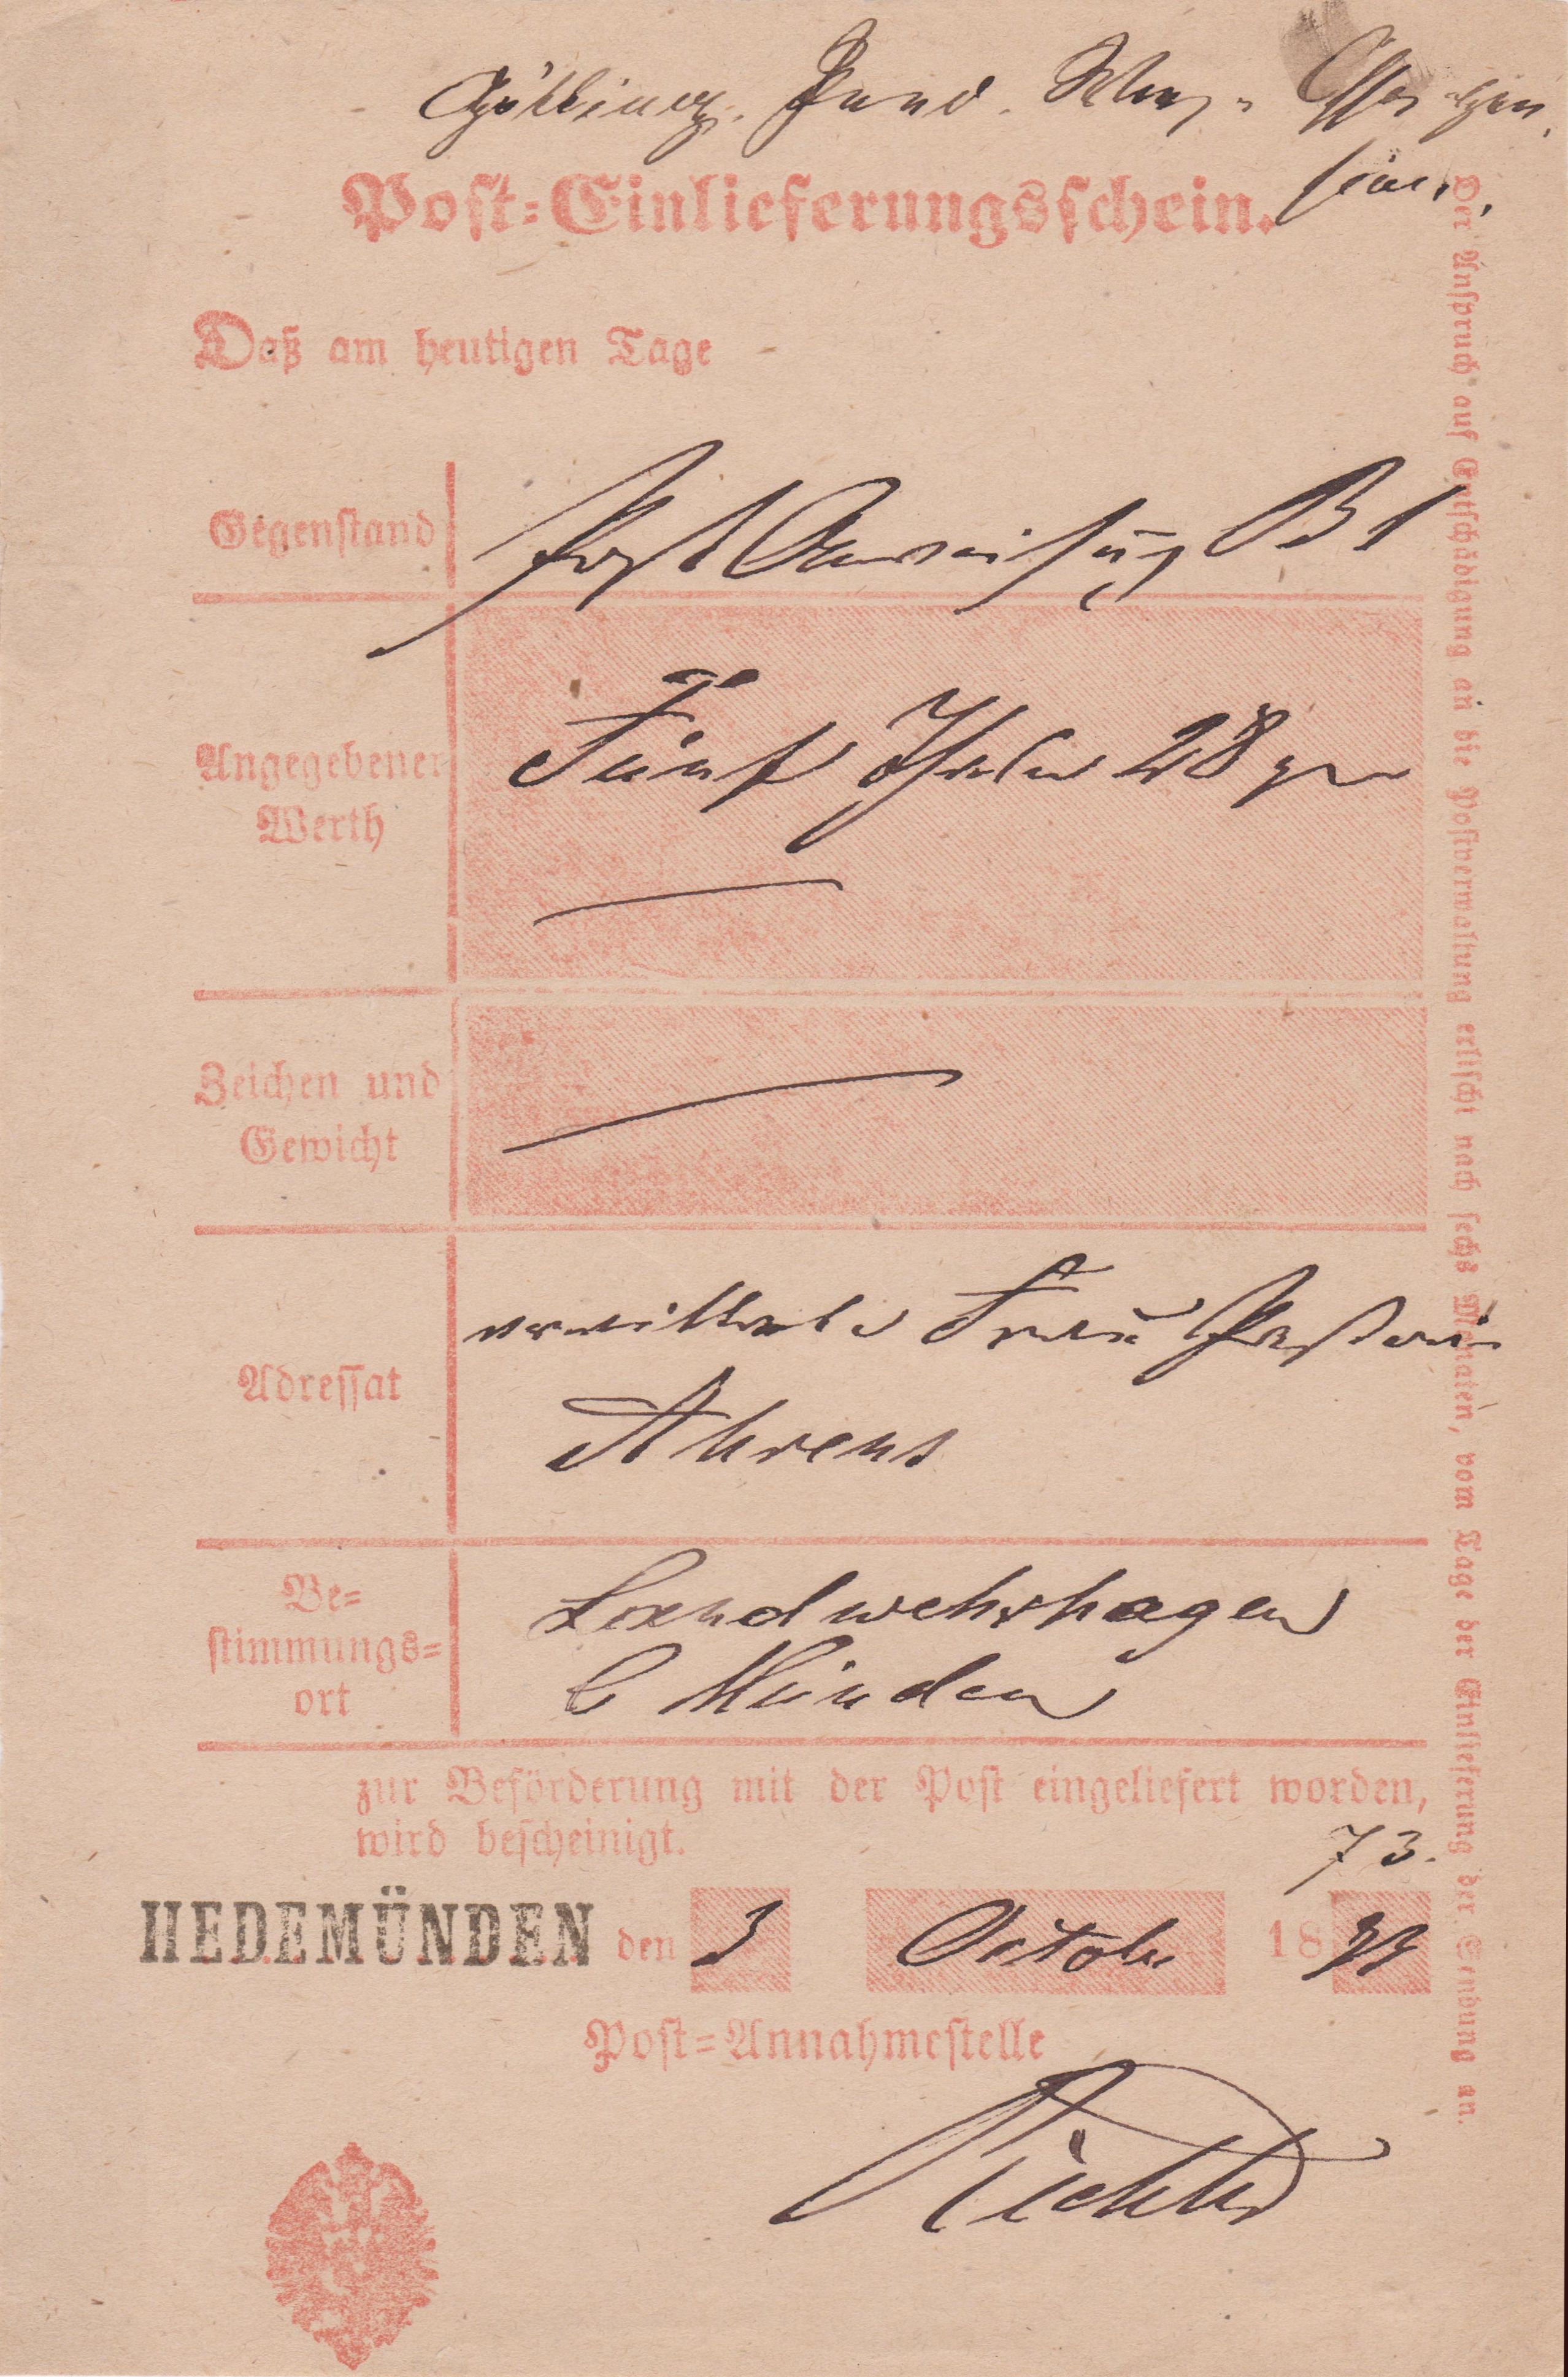 Post-Einlieferungsschein.
Daß am heutigen Tage
Gegenstand
Post Anweisung
Angegebener
Werth
Fünf Thaler 28 gr
Zeichen und
Gewicht
Adressat
verwittwete Frau Pastorin
Ahrens
Be-
stimmungs-
ort
Landwehrhagen
b Münden
zur Beförderung mit der Post eingeliefert worden,
wird bescheinigt.
73.
HEDEMÜNDEN den 3 October 18
Post-Annahmestelle
Richter
Der Anspruch auf Entschädigung an die Postverwaltung erlischt nach sechs Monaten, vom Tage der Einlieferung der Sendung an.